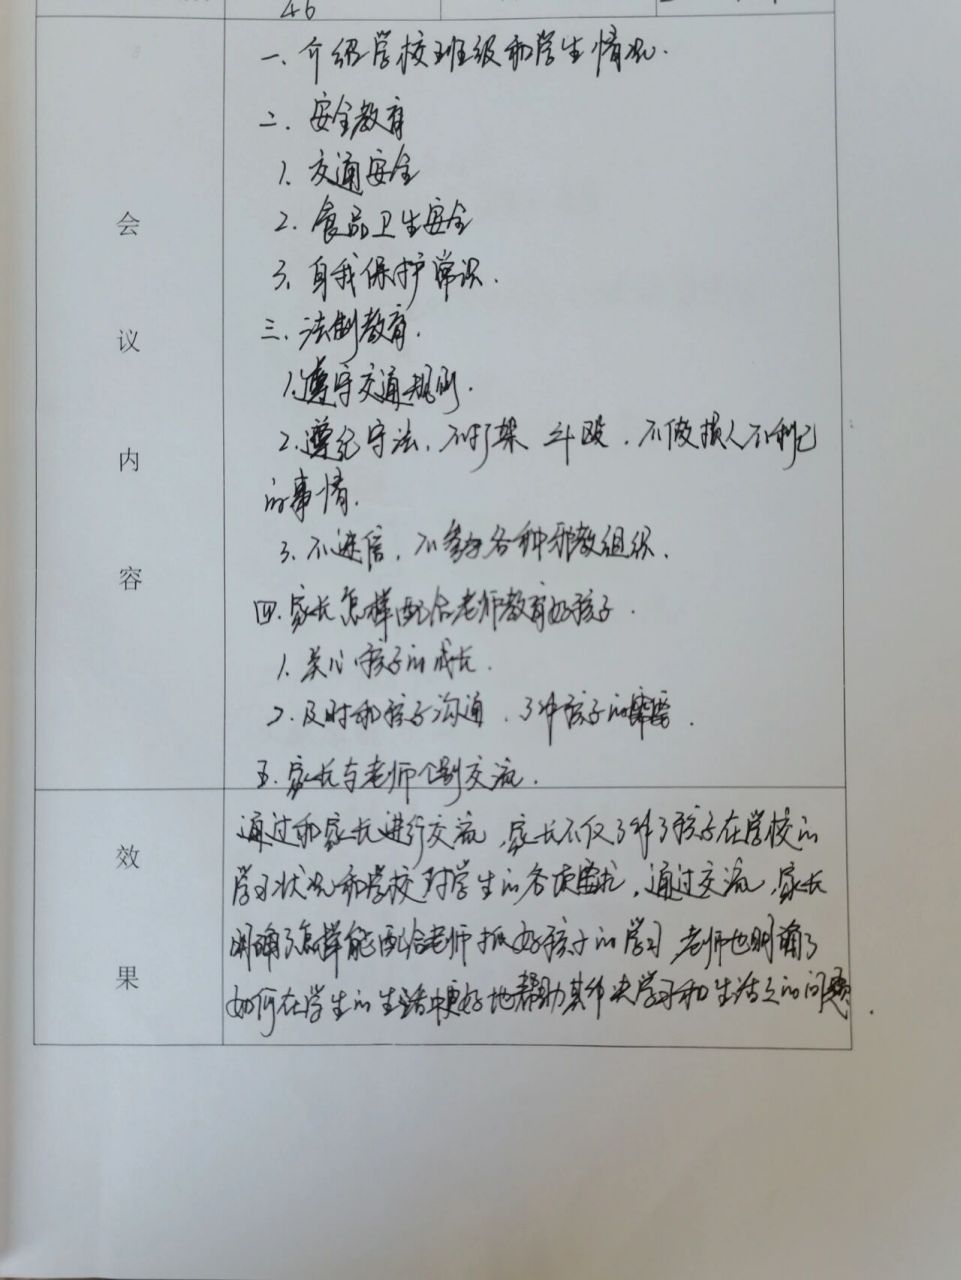 46
一、介绍学校班级和学生情况.
二、安全教育
1、交通安全
2、食品卫生安全
3、自我保护常识.
三、法制教育.
1、遵守交通规则.
2、遵纪守法,不打架斗殴,不做损人不利己
的事情.
3、不迷信,不参与各种邪教组织.
四、家长怎样配合老师教育好孩子.
1、关心孩子的成长.
2、及时和孩子沟通,了解孩子的
五、家长与老师个别交流.
会议内容
通过和家长进行交流,家长不仅了解了孩子在学校的
学习状况和学校对学生的各项要求,通过交流,家长
明确了怎样能配合老师抓好孩子的学习,老师也明确了
如何在学生的生活中更好地帮助其解决学习和生活上的问题.
效果